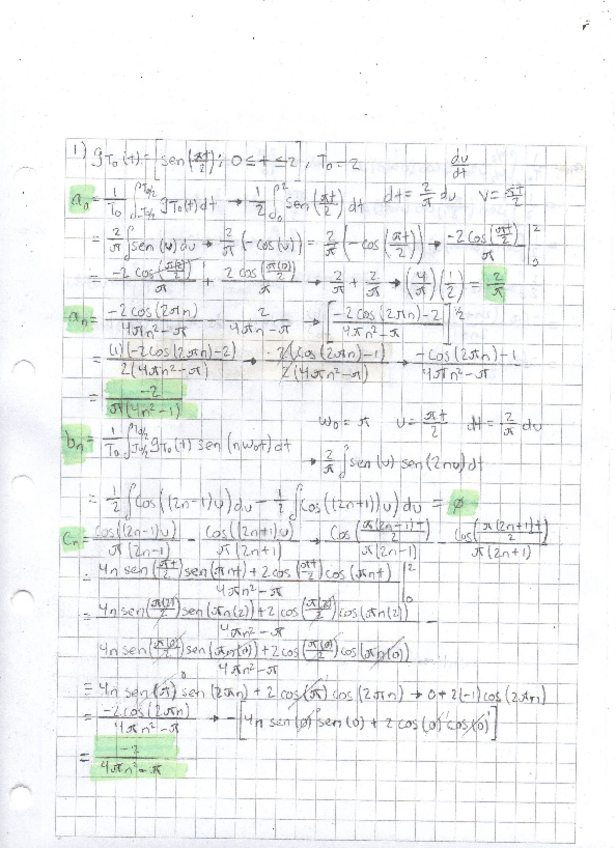 1) gT₀(t)=[sen(πt/2); 0≤t≤2], T₀=2 du/dt
a₀ = 1/T₀ ∫ gT₀(t)dt → 1/2 ∫₀² sen(πt/2)dt dt=2/π du v=πt/2
= 2/π ∫sen(u)du → 2/π(-cos(u)) = 2/π(-cos(πt/2)) → -2cos(πt/2)/π |₀²
= -2cos(π(2)/2)/π + 2cos(π(0)/2)/π → 2/π + 2/π → (4/π)(1/2) = 2/π
aₙ = -2cos(2πn)/4πn²-π - 2/4πn-π → [-2cos(2πn)-2/4πn²-π] 1/2
= (1)(-2cos(2πn)-2)/2(4πn²-π) → 2(-cos(2πn)-1)/2(4πn²-π) → -cos(2πn)-1/4πn²-π
= -2/π(4n²-1)
w₀=π u=πt/2 dt=2/π du
bₙ = 1/T₀ ∫ gT₀(t) sen(nw₀t)dt
→ 2/π ∫sen(u)sen(2nu)dt
= 1/2 ∫cos((2n-1)u)du - 1/2 ∫cos((2n+1))u)du = ø
Cₙ = cos((2n-1)u)/π(2n-1) - cos((2n+1)u)/π(2n+1) → cos(π(2n-1)t/2)/π(2n-1) - cos(π(2n+1)t/2)/π(2n+1)
= 4n sen(πt/2)sen(πnt)+2cos(πt/2)cos(πnt)/4πn²-π |₀²
= 4n sen(π(2)/2)sen(πn(2))+2cos(π(2)/2)cos(πn(2))/4πn²-π -
4n sen(π(0)/2)sen(πn(0))+2cos(π(0)/2)cos(πn(0))/4πn²-π
= 4n sen(π)sen(2πn)+2cos(π)cos(2πn) → 0+2(-1)cos(2πn)
= -2cos(2πn)/4πn²-π → -[4n sen(0)sen(0)+2cos(0)cos(0)]
= -2/4πn²-π